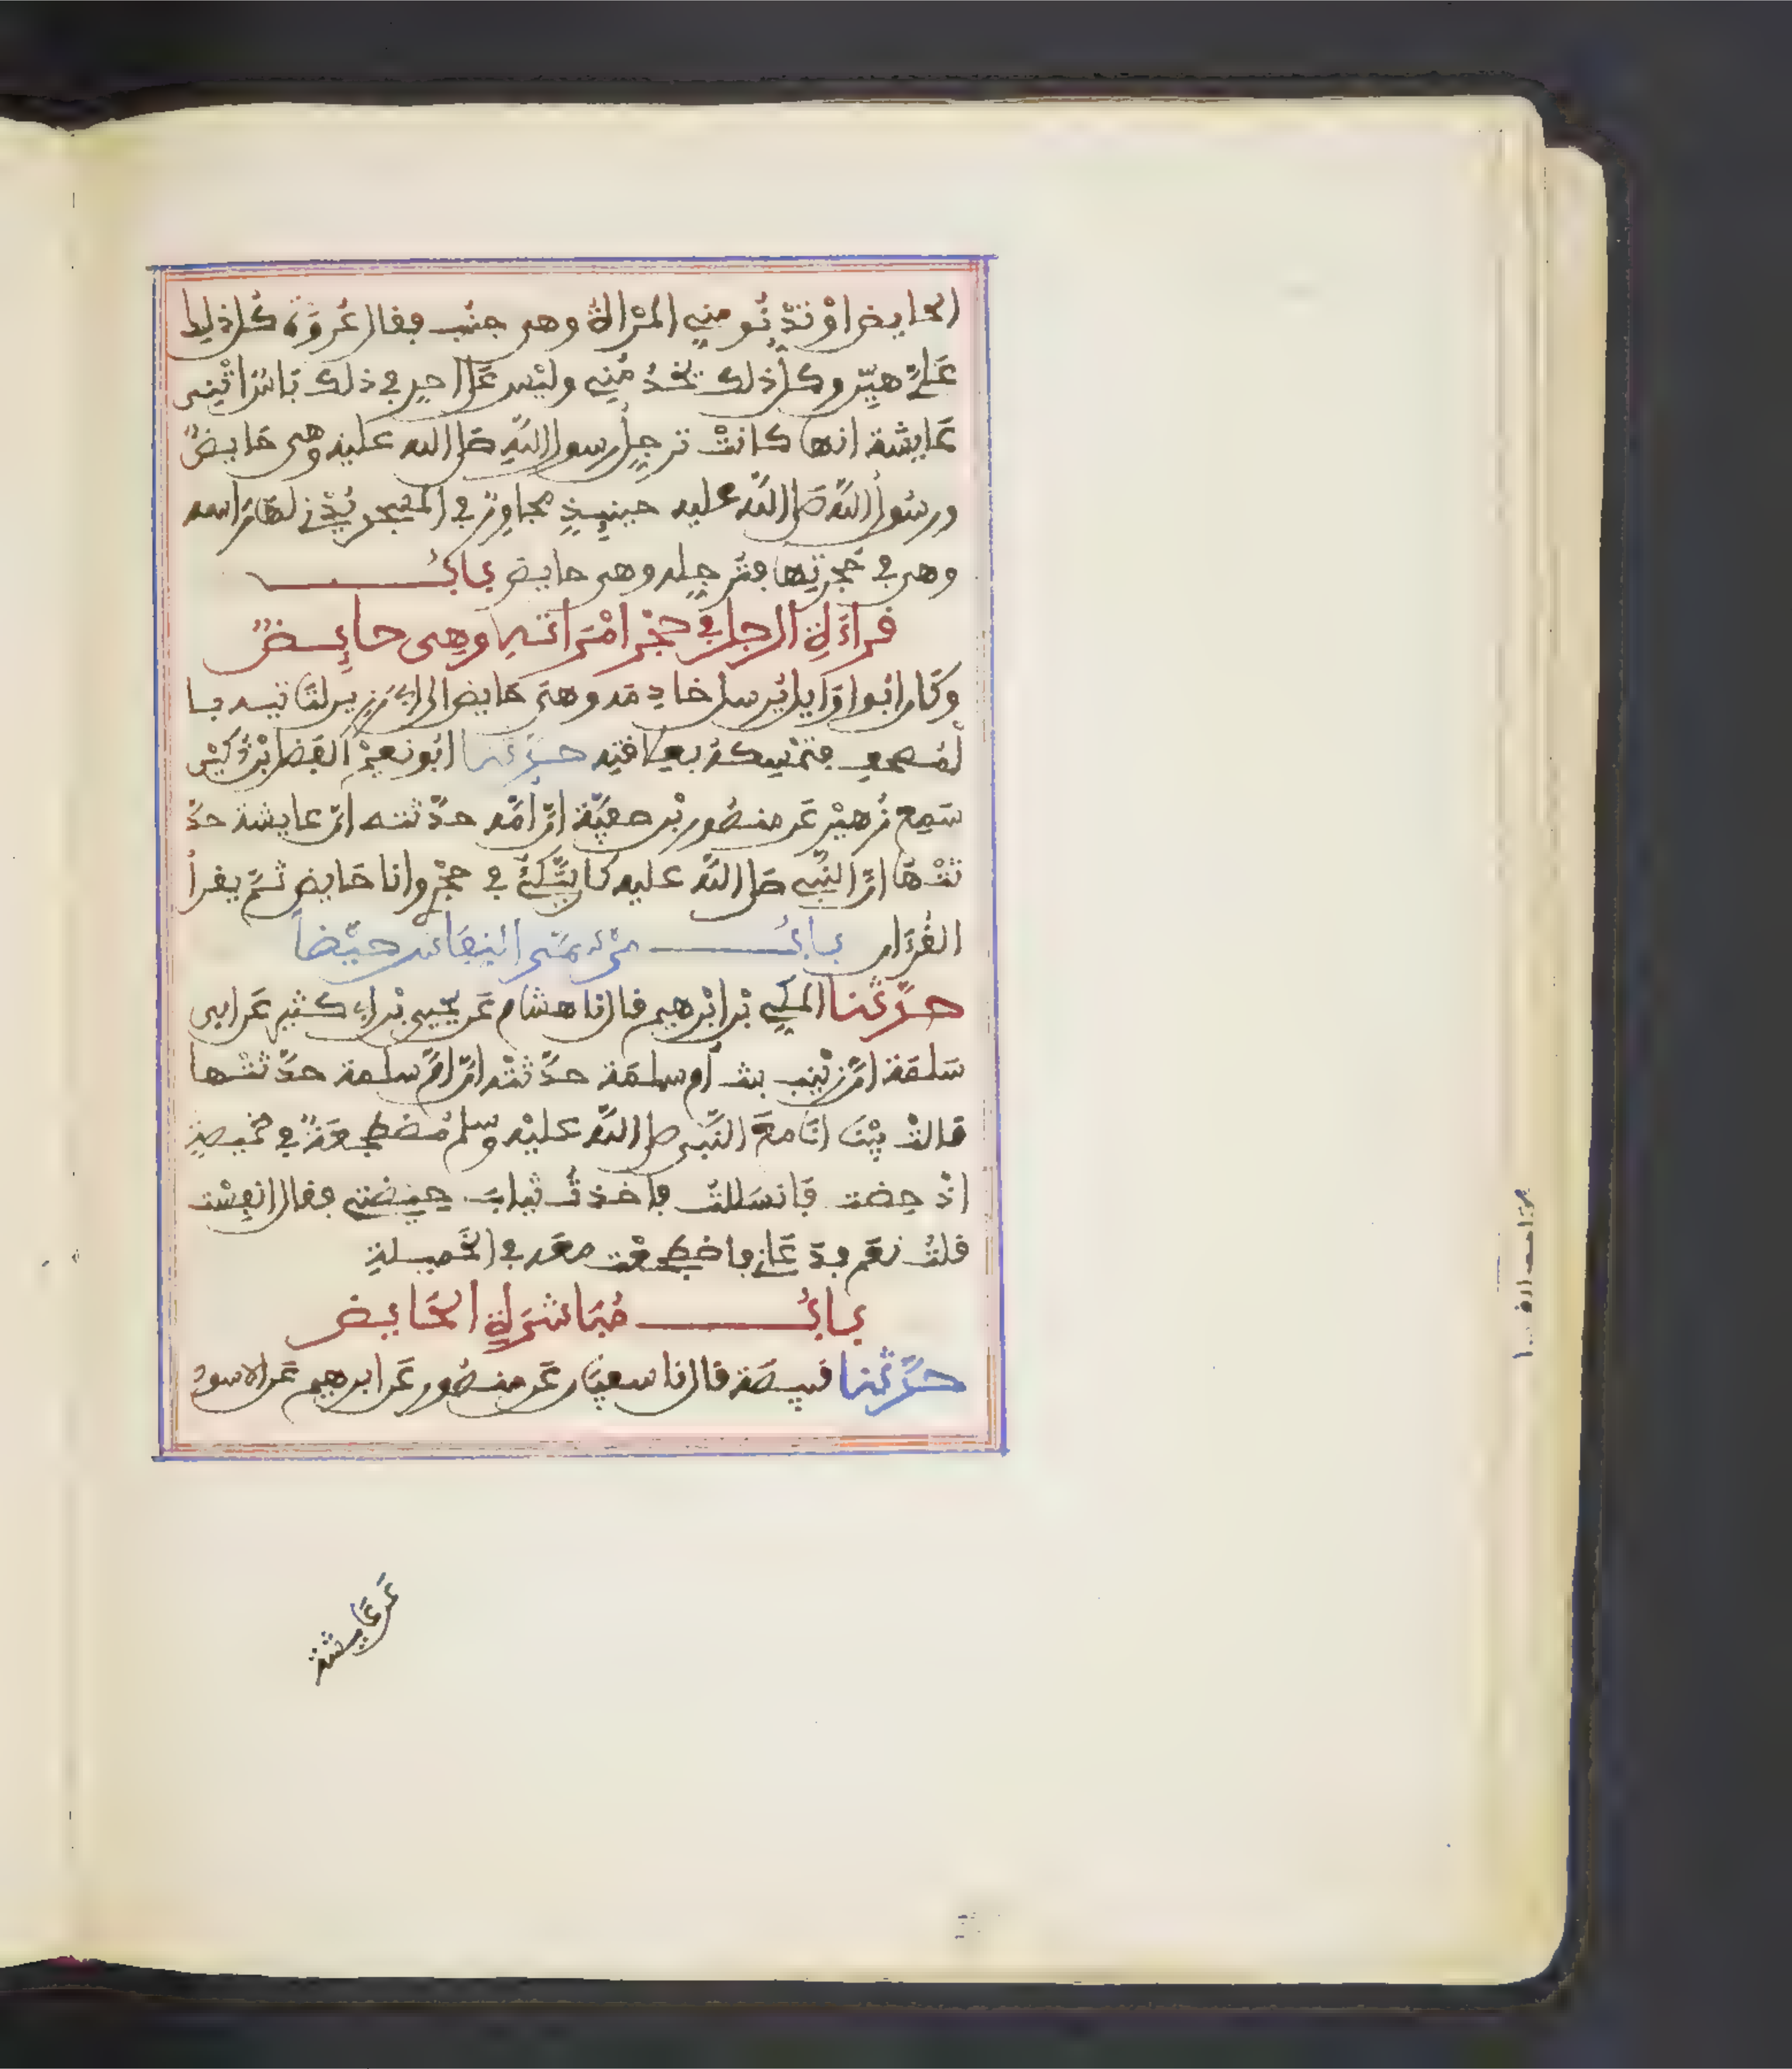 الحايض اوْ تدْنُو مني المرْاةُ وهى جنُب فقال عُروَة كُل ذلِك
عَليّ هيّن وكلُ ذلك تخدُمُني وليْس عَلى احدٍ في ذلك بَاسٌ اخْبَرَتْنِى
عَايشة انها كانتْ ترجِلُ رسول اللهِ صَلى الله عليه وهى حَايضٌ
ورسُولُ اللهِ صَلى اللهُ عليه حينيِذٍ مجاوِرٌ في المسْجد يُدْني لهَا رَاسه
وهى في حُجرتِها فتُرجِله وهى حايض بابُ
قراءَةِ الرجل في حجْر امْرَاتهِ وهِى حائِضٌ
وكَان ابُوا وَايل يُرسل خادِمَه وهىَ حَايض الى ابي رَزِين لتَاتيه با
لْمُصحف فتمْسِكهُ بعِلاقتِه حدّثنا ابُو نعيْمٍ الفَضل ابْن دُكيْنٍ
سَمِع زُهيْر عَن منصُور بْن صفيّة انّ اُمّه حدّثته انّ عايشة حدّ
ثتْهَا انّ النّبي صَلى اللهُ عليه كان يتّكئُ في حجْري وانا حَايض ثمّ يقرأُ
القُرْءان بابُ منْ سَمّى النِفاسَ حيْضاً
حدّثنا المكي بْن ابْرهيم قال نا هشام عَن يحيى بْن ابي كثير عَن ابى
سَلمَة انّ زيْنب بنت اُم سلمَة حدّثتْه انّ امّ سلمة حدّثتْها
قالتْ بيْنَا انَا معَ النّبى صلى اللهُ عليْه وسلم مُضطجعَةٌ في خميصةٍ
اذْ حِضت فَانسَللتُ فاخذتُ ثيابَ حِيْضتي فقال انفِسْت
قلتُ نعَم فدَعَاني فاضْطجعْت معَه في الخَميلةِ
بابُ مُبَاشرَةِ الحَايض
حدّثنا قبيصَة قال نا سفيَان عَن منصُور عَن ابرهيم عَن الاسود
عَن عَايشة